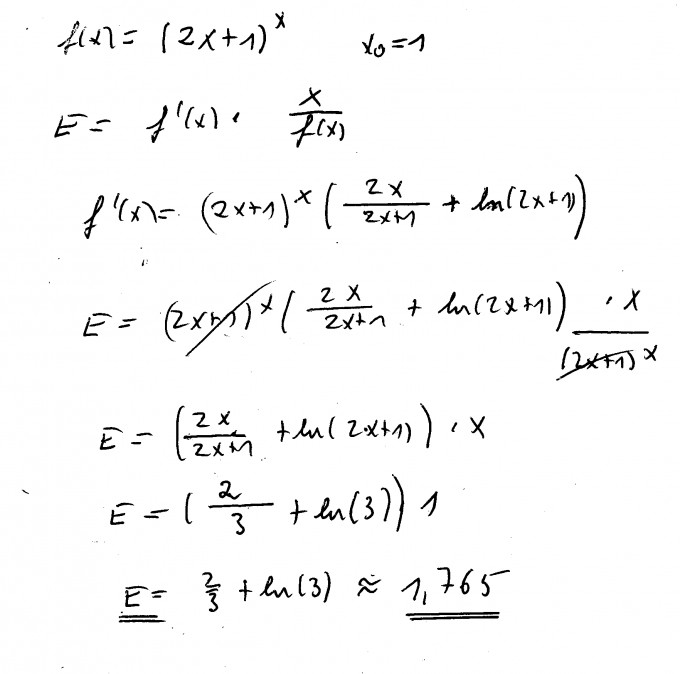 f(x) = (2x+1)^x x₀=1
E = f'(x) · x/f(x)
f'(x) = (2x+1)^x (2x/(2x+1) + ln(2x+1))
E = (2x+1)^x (2x/(2x+1) + ln(2x+1)) · x/(2x+1)^x
E = (2x/(2x+1) + ln(2x+1)) · x
E = (2/3 + ln(3)) 1
E = 2/3 + ln(3) ≈ 1,765